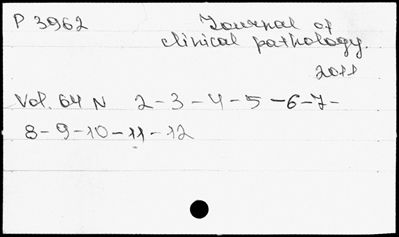 P 3962 Journal of
clinical pathology.
2011
Vol. 64 N 2-3-4-5-6-7-
8-9-10-11-12